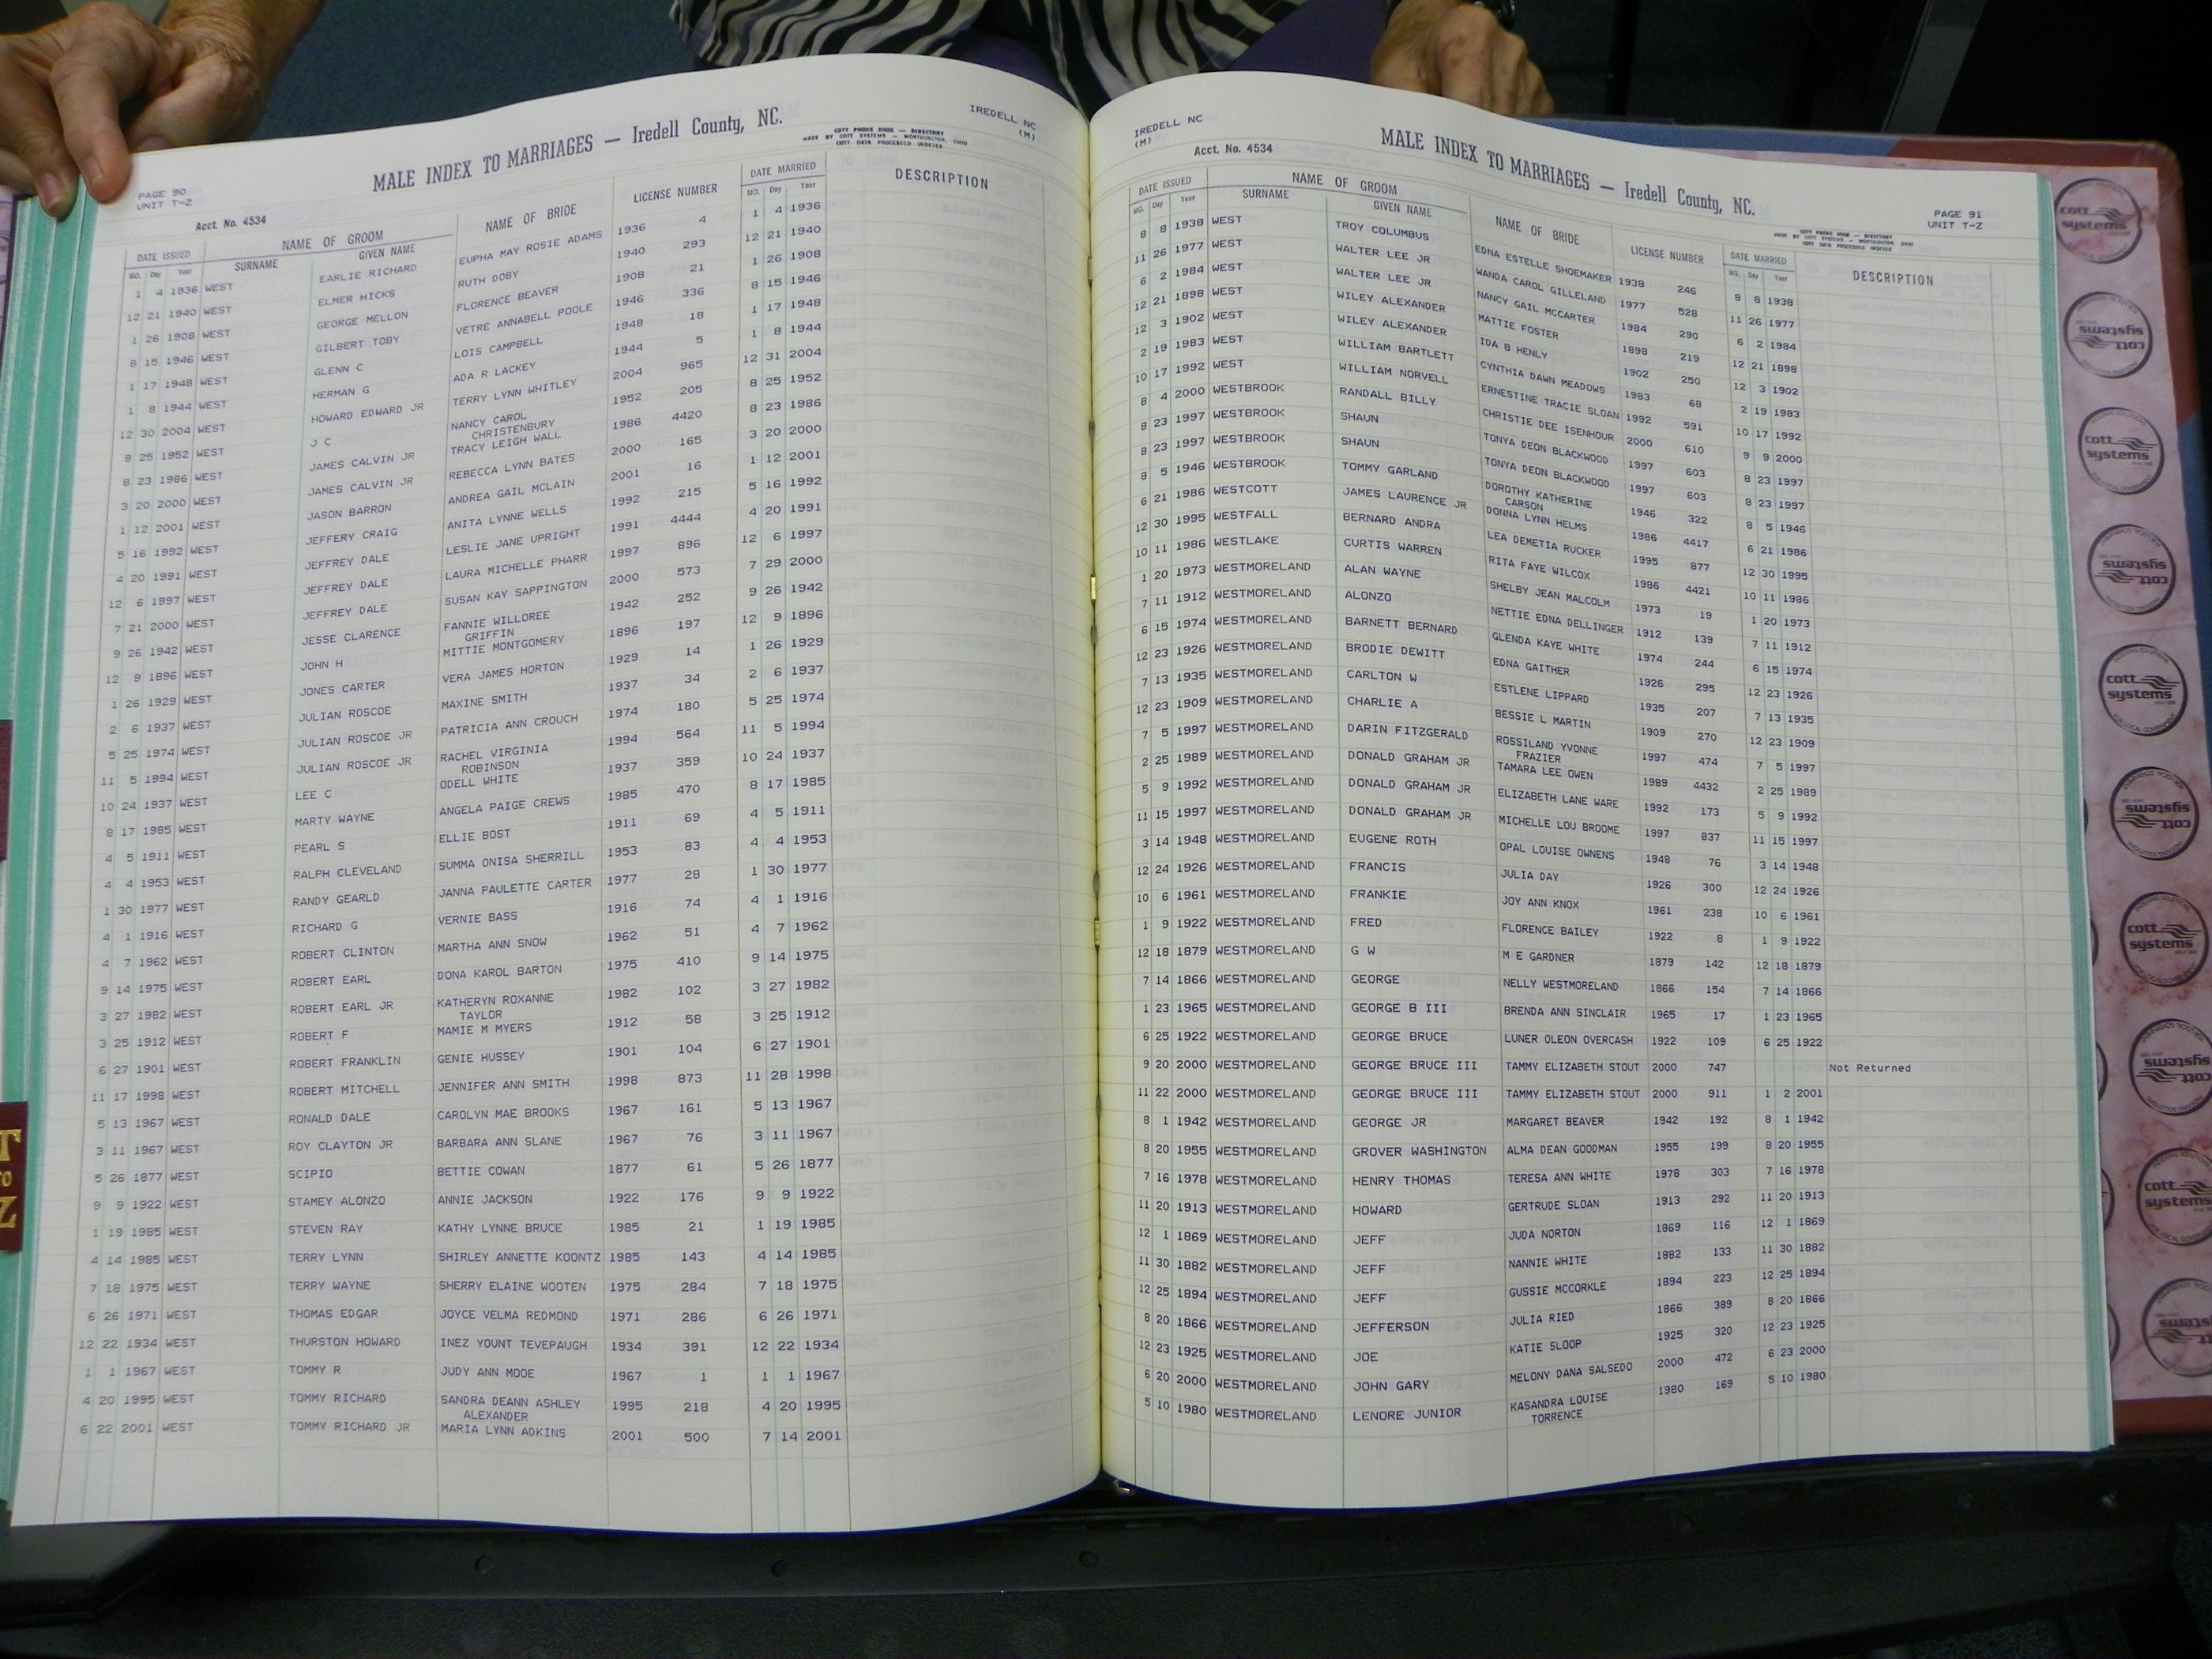 PAGE 90
UNIT T-Z
Acct. No. 4534
MALE INDEX TO MARRIAGES — Iredell County, NC.
COTT PHONE BOOK — DIRECTORY
MADE BY COTT SYSTEMS — WORTHINGTON, OHIO
COTT DATA PROCESSED INDEXES
IREDELL NC
(M)
DATE ISSUED NAME OF GROOM NAME OF BRIDE LICENSE NUMBER DATE MARRIED DESCRIPTION
MO. Day Year SURNAME GIVEN NAME MO. Day Year
1 4 1936 WEST EARLIE RICHARD EUPHA MAY ROSIE ADAMS 1936 4 1 4 1936
12 21 1940 WEST ELMER HICKS RUTH DOBY 1940 293 12 21 1940
1 26 1908 WEST GEORGE MELLON FLORENCE BEAVER 1908 21 1 26 1908
8 15 1946 WEST GILBERT TOBY VETRE ANNABELL POOLE 1946 336 8 15 1946
1 17 1948 WEST GLENN C LOIS CAMPBELL 1948 18 1 17 1948
1 8 1944 WEST HERMAN G ADA R LACKEY 1944 5 1 8 1944
12 30 2004 WEST HOWARD EDWARD JR TERRY LYNN WHITLEY 2004 965 12 31 2004
8 25 1952 WEST J C NANCY CAROL 1952 205 8 25 1952
CHRISTENBURY
8 23 1986 WEST JAMES CALVIN JR TRACY LEIGH WALL 1986 4420 8 23 1986
3 20 2000 WEST JAMES CALVIN JR REBECCA LYNN BATES 2000 165 3 20 2000
1 12 2001 WEST JASON BARRON ANDREA GAIL MCLAIN 2001 16 1 12 2001
5 16 1992 WEST JEFFERY CRAIG ANITA LYNNE WELLS 1992 215 5 16 1992
4 20 1991 WEST JEFFREY DALE LESLIE JANE UPRIGHT 1991 4444 4 20 1991
12 6 1997 WEST JEFFREY DALE LAURA MICHELLE PHARR 1997 896 12 6 1997
7 21 2000 WEST JEFFREY DALE SUSAN KAY SAPPINGTON 2000 573 7 29 2000
9 26 1942 WEST JESSE CLARENCE FANNIE WILLOREE 1942 252 9 26 1942
GRIFFIN
12 9 1896 WEST JOHN H MITTIE MONTGOMERY 1896 197 12 9 1896
1 26 1929 WEST JONES CARTER VERA JAMES HORTON 1929 14 1 26 1929
2 6 1937 WEST JULIAN ROSCOE MAXINE SMITH 1937 34 2 6 1937
5 25 1974 WEST JULIAN ROSCOE JR PATRICIA ANN CROUCH 1974 180 5 25 1974
11 5 1994 WEST JULIAN ROSCOE JR RACHEL VIRGINIA 1994 564 11 5 1994
ROBINSON
10 24 1937 WEST LEE C ODELL WHITE 1937 359 10 24 1937
8 17 1985 WEST MARTY WAYNE ANGELA PAIGE CREWS 1985 470 8 17 1985
4 5 1911 WEST PEARL S ELLIE BOST 1911 69 4 5 1911
4 4 1953 WEST RALPH CLEVELAND SUMMA ONISA SHERRILL 1953 83 4 4 1953
1 30 1977 WEST RANDY GEARLD JANNA PAULETTE CARTER 1977 28 1 30 1977
4 1 1916 WEST RICHARD G VERNIE BASS 1916 74 4 1 1916
4 7 1962 WEST ROBERT CLINTON MARTHA ANN SNOW 1962 51 4 7 1962
9 14 1975 WEST ROBERT EARL DONA KAROL BARTON 1975 410 9 14 1975
3 27 1982 WEST ROBERT EARL JR KATHERYN ROXANNE 1982 102 3 27 1982
TAYLOR
3 25 1912 WEST ROBERT F MAMIE M MYERS 1912 58 3 25 1912
6 27 1901 WEST ROBERT FRANKLIN GENIE HUSSEY 1901 104 6 27 1901
11 17 1998 WEST ROBERT MITCHELL JENNIFER ANN SMITH 1998 873 11 28 1998
5 13 1967 WEST RONALD DALE CAROLYN MAE BROOKS 1967 161 5 13 1967
3 11 1967 WEST ROY CLAYTON JR BARBARA ANN SLANE 1967 76 3 11 1967
5 26 1877 WEST SCIPIO BETTIE COWAN 1877 61 5 26 1877
9 9 1922 WEST STAMEY ALONZO ANNIE JACKSON 1922 176 9 9 1922
1 19 1985 WEST STEVEN RAY KATHY LYNNE BRUCE 1985 21 1 19 1985
4 14 1985 WEST TERRY LYNN SHIRLEY ANNETTE KOONTZ 1985 143 4 14 1985
7 18 1975 WEST TERRY WAYNE SHERRY ELAINE WOOTEN 1975 284 7 18 1975
6 26 1971 WEST THOMAS EDGAR JOYCE VELMA REDMOND 1971 286 6 26 1971
12 22 1934 WEST THURSTON HOWARD INEZ YOUNT TEVEPAUGH 1934 391 12 22 1934
1 1 1967 WEST TOMMY R JUDY ANN MOOE 1967 1 1 1 1967
4 20 1995 WEST TOMMY RICHARD SANDRA DEANN ASHLEY 1995 218 4 20 1995
ALEXANDER
6 22 2001 WEST TOMMY RICHARD JR MARIA LYNN ADKINS 2001 500 7 14 2001
T
TO
Z
IREDELL NC
(M)
Acct. No. 4534
MALE INDEX TO MARRIAGES — Iredell County, NC.
COTT PHONE BOOK — DIRECTORY
MADE BY COTT SYSTEMS — WORTHINGTON OHIO
COTT DATA PROCESSED INDEXES
PAGE 91
UNIT T-Z
DATE ISSUED NAME OF GROOM NAME OF BRIDE LICENSE NUMBER DATE MARRIED DESCRIPTION
MO. Day Year SURNAME GIVEN NAME MO. Day Year
8 8 1938 WEST TROY COLUMBUS EDNA ESTELLE SHOEMAKER 1938 246 8 8 1938
11 26 1977 WEST WALTER LEE JR WANDA CAROL GILLELAND 1977 528 11 26 1977
6 2 1984 WEST WALTER LEE JR NANCY GAIL MCCARTER 1984 290 6 2 1984
12 21 1898 WEST WILEY ALEXANDER MATTIE FOSTER 1898 219 12 21 1898
12 3 1902 WEST WILEY ALEXANDER IDA B HENLY 1902 250 12 3 1902
2 19 1983 WEST WILLIAM BARTLETT CYNTHIA DAWN MEADOWS 1983 68 2 19 1983
10 17 1992 WEST WILLIAM NORVELL ERNESTINE TRACIE SLOAN 1992 591 10 17 1992
8 4 2000 WESTBROOK RANDALL BILLY CHRISTIE DEE ISENHOUR 2000 610 9 9 2000
8 23 1997 WESTBROOK SHAUN TONYA DEON BLACKWOOD 1997 603 8 23 1997
8 23 1997 WESTBROOK SHAUN TONYA DEON BLACKWOOD 1997 603 8 23 1997
8 5 1946 WESTBROOK TOMMY GARLAND DOROTHY KATHERINE 1946 322 8 5 1946
CARSON
6 21 1986 WESTCOTT JAMES LAURENCE JR DONNA LYNN HELMS 1986 4417 6 21 1986
12 30 1995 WESTFALL BERNARD ANDRA LEA DEMETIA RUCKER 1995 877 12 30 1995
10 11 1986 WESTLAKE CURTIS WARREN RITA FAYE WILCOX 1986 4421 10 11 1986
1 20 1973 WESTMORELAND ALAN WAYNE SHELBY JEAN MALCOLM 1973 19 1 20 1973
7 11 1912 WESTMORELAND ALONZO NETTIE EDNA DELLINGER 1912 139 7 11 1912
6 15 1974 WESTMORELAND BARNETT BERNARD GLENDA KAYE WHITE 1974 244 6 15 1974
12 23 1926 WESTMORELAND BRODIE DEWITT EDNA GAITHER 1926 295 12 23 1926
7 13 1935 WESTMORELAND CARLTON W ESTLENE LIPPARD 1935 207 7 13 1935
12 23 1909 WESTMORELAND CHARLIE A BESSIE L MARTIN 1909 270 12 23 1909
7 5 1997 WESTMORELAND DARIN FITZGERALD ROSSILAND YVONNE 1997 474 7 5 1997
FRAZIER
2 25 1989 WESTMORELAND DONALD GRAHAM JR TAMARA LEE OWEN 1989 4432 2 25 1989
5 9 1992 WESTMORELAND DONALD GRAHAM JR ELIZABETH LANE WARE 1992 173 5 9 1992
11 15 1997 WESTMORELAND DONALD GRAHAM JR MICHELLE LOU BROOME 1997 837 11 15 1997
3 14 1948 WESTMORELAND EUGENE ROTH OPAL LOUISE OWNENS 1948 76 3 14 1948
12 24 1926 WESTMORELAND FRANCIS JULIA DAY 1926 300 12 24 1926
10 6 1961 WESTMORELAND FRANKIE JOY ANN KNOX 1961 238 10 6 1961
1 9 1922 WESTMORELAND FRED FLORENCE BAILEY 1922 8 1 9 1922
12 18 1879 WESTMORELAND G W M E GARDNER 1879 142 12 18 1879
7 14 1866 WESTMORELAND GEORGE NELLY WESTMORELAND 1866 154 7 14 1866
1 23 1965 WESTMORELAND GEORGE B III BRENDA ANN SINCLAIR 1965 17 1 23 1965
6 25 1922 WESTMORELAND GEORGE BRUCE LUNER OLEON OVERCASH 1922 109 6 25 1922
9 20 2000 WESTMORELAND GEORGE BRUCE III TAMMY ELIZABETH STOUT 2000 747 Not Returned
11 22 2000 WESTMORELAND GEORGE BRUCE III TAMMY ELIZABETH STOUT 2000 911 1 2 2001
8 1 1942 WESTMORELAND GEORGE JR MARGARET BEAVER 1942 192 8 1 1942
8 20 1955 WESTMORELAND GROVER WASHINGTON ALMA DEAN GOODMAN 1955 199 8 20 1955
7 16 1978 WESTMORELAND HENRY THOMAS TERESA ANN WHITE 1978 303 7 16 1978
11 20 1913 WESTMORELAND HOWARD GERTRUDE SLOAN 1913 292 11 20 1913
12 1 1869 WESTMORELAND JEFF JUDA NORTON 1869 116 12 1 1869
11 30 1882 WESTMORELAND JEFF NANNIE WHITE 1882 133 11 30 1882
12 25 1894 WESTMORELAND JEFF GUSSIE MCCORKLE 1894 223 12 25 1894
8 20 1866 WESTMORELAND JEFFERSON JULIA RIED 1866 389 8 20 1866
12 23 1925 WESTMORELAND JOE KATIE SLOOP 1925 320 12 23 1925
6 20 2000 WESTMORELAND JOHN GARY MELONY DANA SALSEDO 2000 472 6 23 2000
5 10 1980 WESTMORELAND LENORE JUNIOR KASANDRA LOUISE 1980 169 5 10 1980
TORRENCE
cott systems
cott systems
cott systems
cott systems
cott systems
cott systems
cott systems
cott systems
cott systems
cott systems